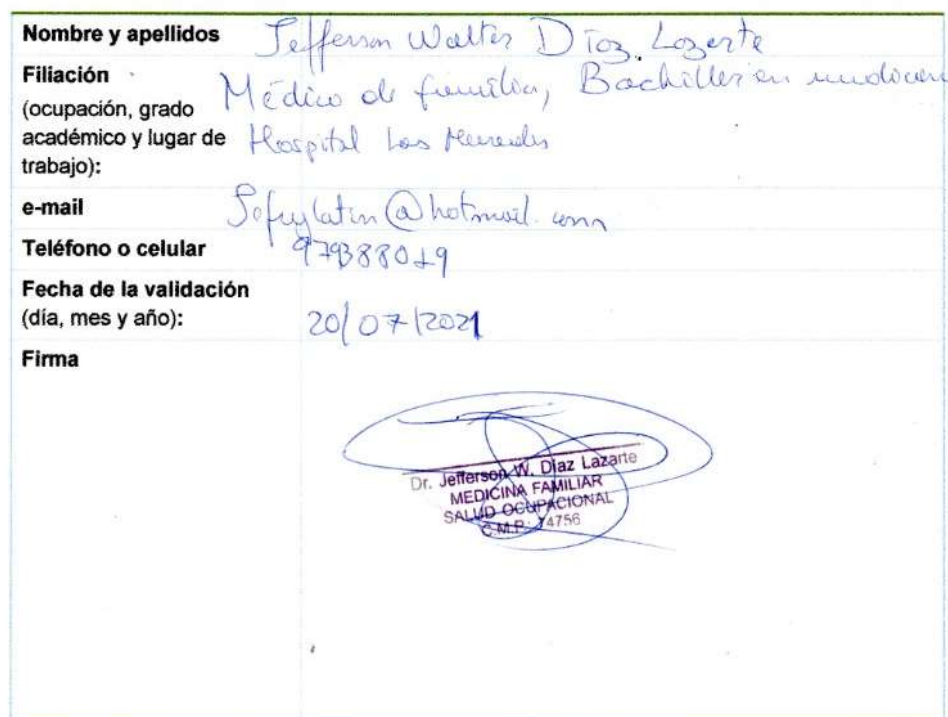 Nombre y apellidos Jefferson Walter Díaz Lazarte
Filiación
(ocupación, grado Médico de familia, Bachiller en medicina
académico y lugar de Hospital Las Mercedes
trabajo):
e-mail @hotmail.com
Teléfono o celular 979388019
Fecha de la validación
(día, mes y año): 20/07/2021
Firma
Dr. Jefferson W. Diaz Lazarte
MEDICINA FAMILIAR
SALUD OCUPACIONAL
C.M.P.: 74756